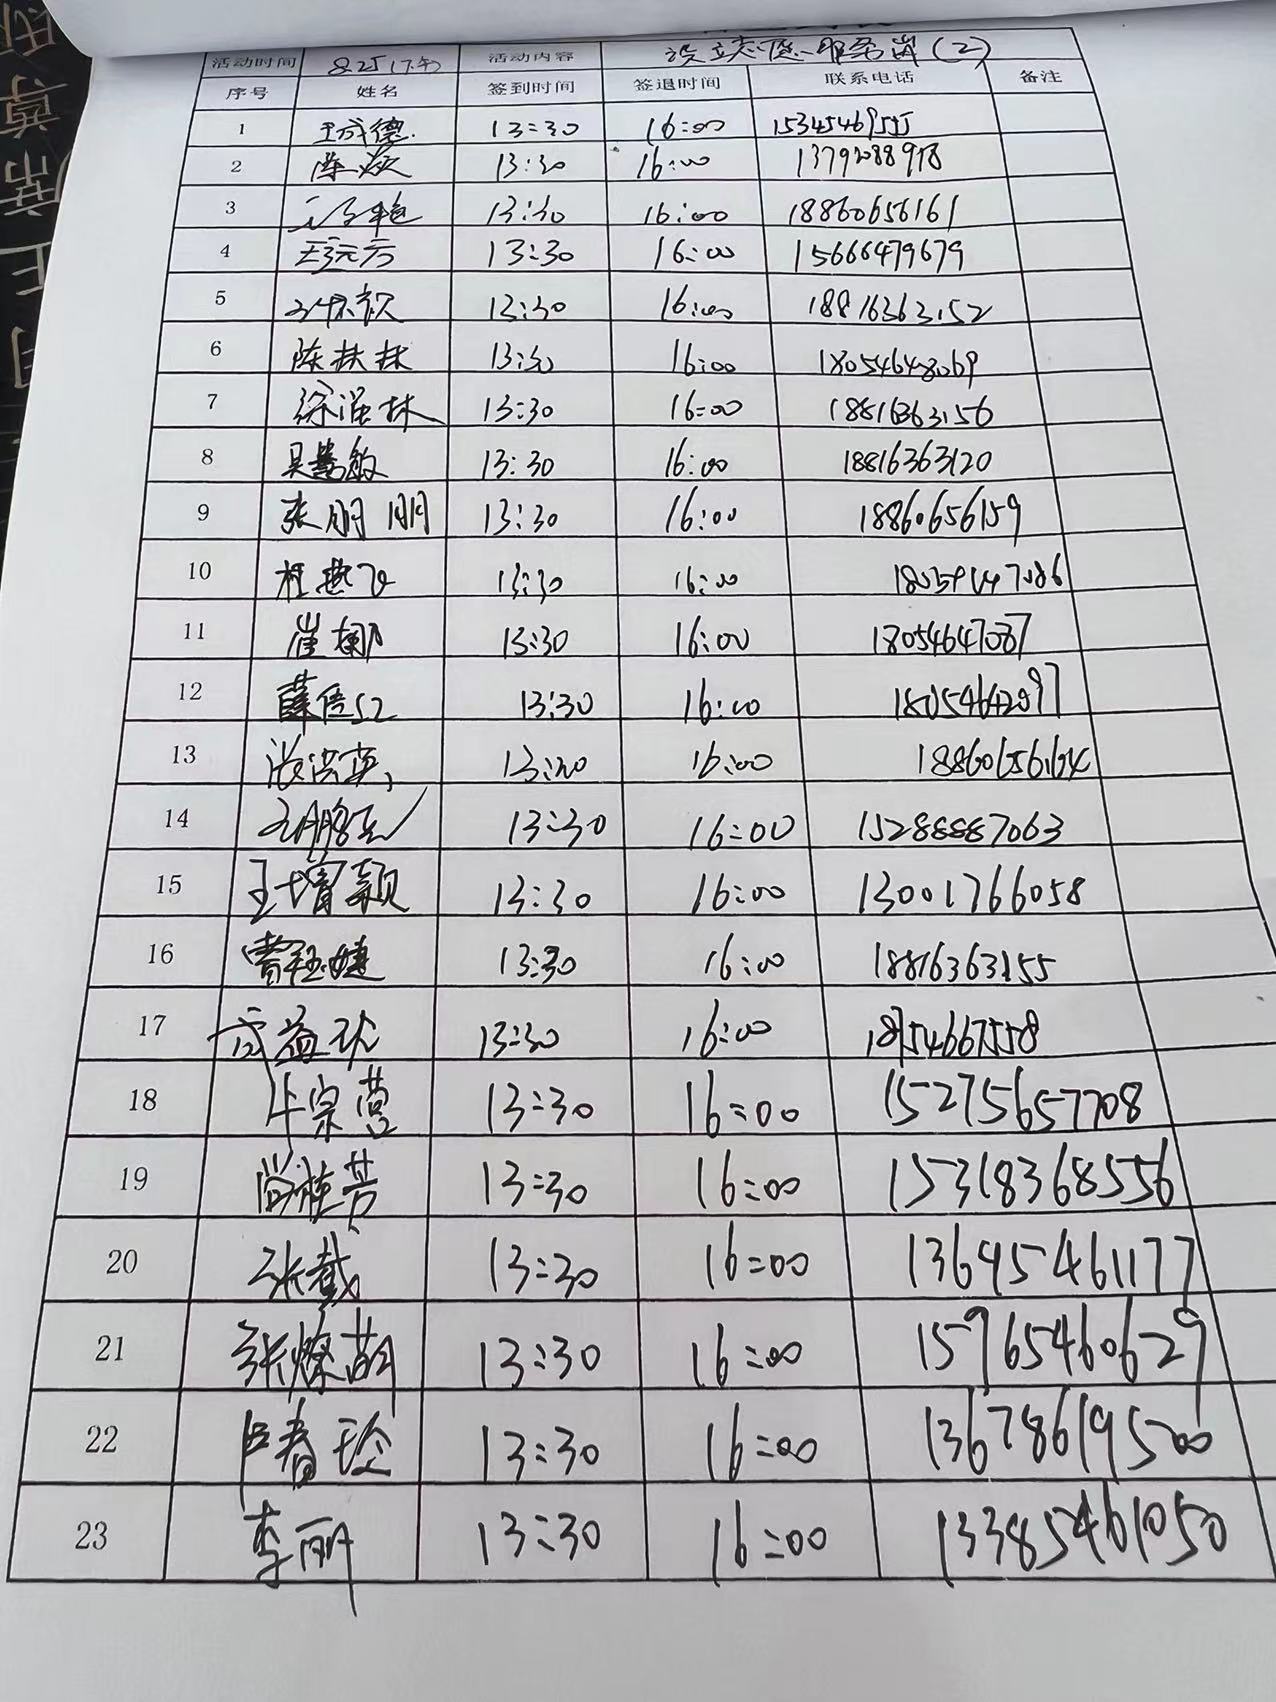 活动时间 8.25(下午) 活动内容 设立志愿服务岗(2)
序号 姓名 签到时间 签退时间 联系电话 备注
1 王成德 13:30 16:00 15345469555
2 陈 13:30 16:00
3 13:30 16:00 18860656161
4 13:30 16:00 15666479679
5 13:30 16:00 18816363152
6 陈扶扶 13:30 16:00 18054648069
7 徐海林 13:30 16:00 18816363156
8 吴慧敏 13:30 16:00 18816363120
9 张朋朋 13:30 16:00 18860656159
10 13:30 16:00
11 崔娜 13:30 16:00 18054647087
12 薛 13:30 16:00 18054642097
13 13:30 16:00
14 13:30 16:00 15288887063
15 王增颖 13:30 16:00 13001766058
16 曹钰婕 13:30 16:00 18816363155
17 13:30 16:00 18754667558
18 宗营 13:30 16:00 15275657708
19 尚桂芳 13:30 16:00 15318368556
20 张戴 13:30 16:00 13645461177
21 张燎萌 13:30 16:00 15965460629
22 卢春玲 13:30 16:00 13678619500
23 李丽 13:30 16:00 13385461050